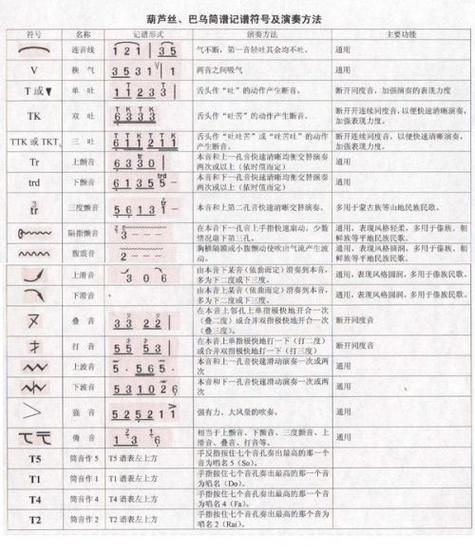 葫芦丝、巴乌简谱记谱符号及演奏方法
符号 名称 记谱形式 演奏方法 主要功能
连音线 1 2 1 | 3 5 气不断，第一音轻吐其余均不吐。 通用
V 换气 3 5 3 1 V | 1 两音之间吸气 通用
T 或▼ 单吐 1 2 3 3 | 舌头作“吐”的动作产生断音。 断开同度音，加强演奏的表现力度
TK 双吐 6 3 3 3 舌头作“吐苦”的动作产生断音。 断开开连续同度音，以便快速清晰演奏，
加强表现力度。
TTK 或 TKT 三吐 6 1 1 2 1 1 舌头作“吐吐苦”或“吐苦吐”的动作
产生断音。 断开连续同度音，以便快速清晰演奏，
加强表现力度。
Tr 上颤音 6 3 3 0 | 本音和上一孔音快速清晰均衡交替演奏
两次或以上（依时值而定） 通用
trd 下颤音 6 1 3 5 5 - 本音和下一孔音快速清晰均衡交替演奏
两次或以上（依时值而定） 通用
3 tr 三度颤音 5 6 1 3 1 - 本音和上第二孔音快速清晰交替演奏。 多用于蒙古族等山地民族民歌。
隔指颤音 3 - - - 在本音下一孔音上手指快速扇动，少数
情况扇下第三孔。 通用，表现风格轻柔，多用于傣族、朝
鲜族等平地民族民歌。
腹颤音 2 - - - 胸横隔膜或小腹颤动使吹出气流产生波
动。 通用，表现风格圆润，多用于傣族、朝
鲜族等平地民族民歌。
上滑音 3 0 6 由本音下某音（依曲而定）滑奏到本音，
多为下二度或下三度。 通用，表现风格圆润，多用于傣族民歌。
下滑音 由本音上某音（依曲而定）滑奏到本音，
多为下二度或下三度。 通用，表现风格圆润，多用于傣族民歌。
叠音 3 3 2 2 | 在本音上邻孔上单指极快地开合一次
（叠二度）或合并双指极快地开合一次
（叠三度）。 断开同度音
打音 5 5 5 3 | 在本音上单指极快地打一下（打二度）
或合并双指极快地打一下（打三度） 断开同度音
上波音 5 · 5 6 5 · 本音和上一孔音快速滑动演奏一次或两
次 通用
下波音 5 3 1 0 2 6 本音和下一孔音快速滑动演奏一次或两
次 通用
> 强音 5 2 5 2 1 1 强有力、大风量的吹奏。 通用
倚音 1 3 6 相当于上颤音、下颤音、三度颤音、上
滑音、叠音、打音等。 通用
T5 筒音作 5 T5 谱表左上方 手指按住七个音孔奏出最高的那一个
音为唱名 5（So）。
T1 筒音作 1 T1 谱表左上方 手指按住七个音孔奏出最高的那一个音
为唱名（Do）。
T4 筒音作 4 T4 谱表左上方 手指按住七个音孔奏出最高的那一个音
为唱名 4（Fa）。
T2 筒音作 2 T2 谱表左上方 手指按住七个音孔奏出最高的那一个音为
唱名 2（Rai）。